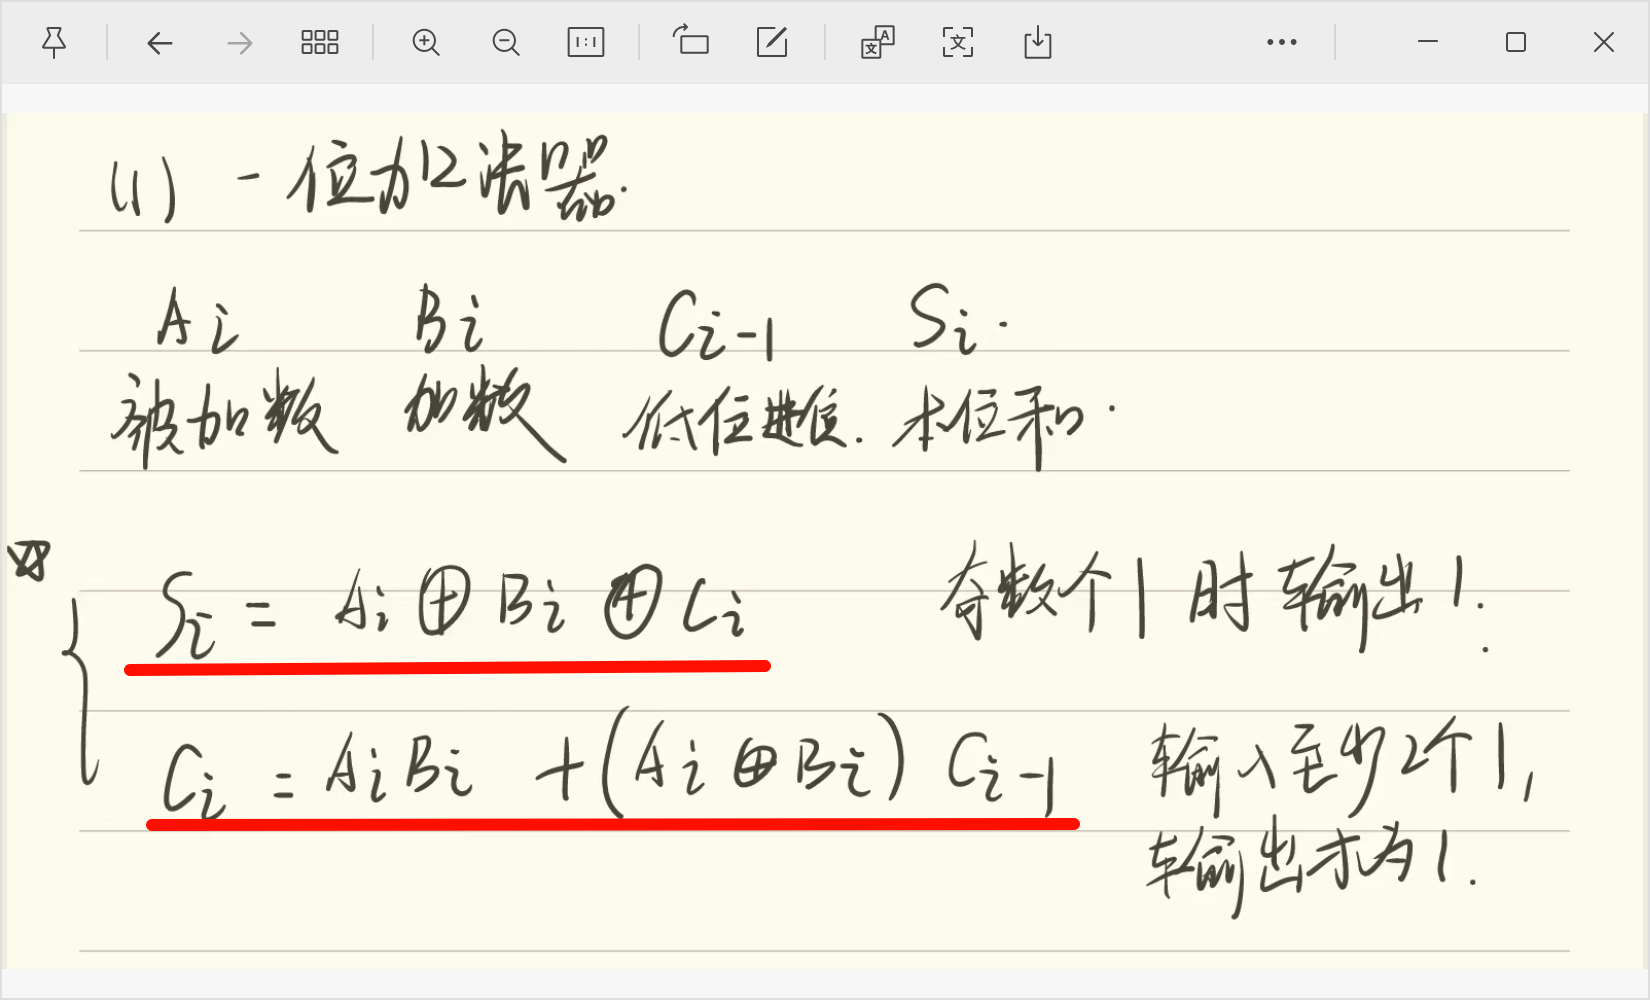 (1) 一位加法器.
Ai Bi Ci-1 Si.
被加数 加数 低位进位. 本位和.
Si = Ai ⊕ Bi ⊕ Ci 奇数个1时输出1.
Ci = AiBi + (Ai ⊕ Bi) Ci-1 输入至少2个1,
输出才为1.